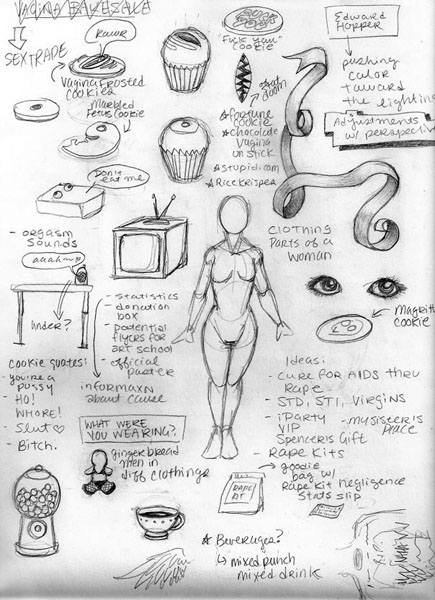 VAGINA BAKESALE
SEXTRADE
Rawr
Vagina Frosted
Cookies
Marbled
Fetus Cookie
Don't
eat me
"FUCK YOU"
COOKIE
fortune
cookie
chocolate
vagina
on stick
stupid.com
Rice Krispies
Edward
Hopper
pushing
color
toward
the lighting
Adjustments
w/ perspective
- orgasm
sounds
aaahh
under?
- statistics
- donation
box
- potential
flyers for
art school
- official
poster
informaxn
about cause
CLOTHING
PARTS OF a
WOMAN
Magritte
cookie
cookie quotes:
- you're a
pussy
- HO!
WHORE!
- Slut ♡
- Bitch.
WHAT WERE
YOU WEARING?
gingerbread
men in
diff clothings
Ideas:
- CURE FOR AIDS thru
Rape
- STD, STI, Virgins
- iParty
VIP
Spencer's Gift
- my sister's
place
- Rape Kits
goodie
bag w/
Rape kit negligence
stats slip
RAPE
KIT
Beverages?
mixed punch
mixed drink